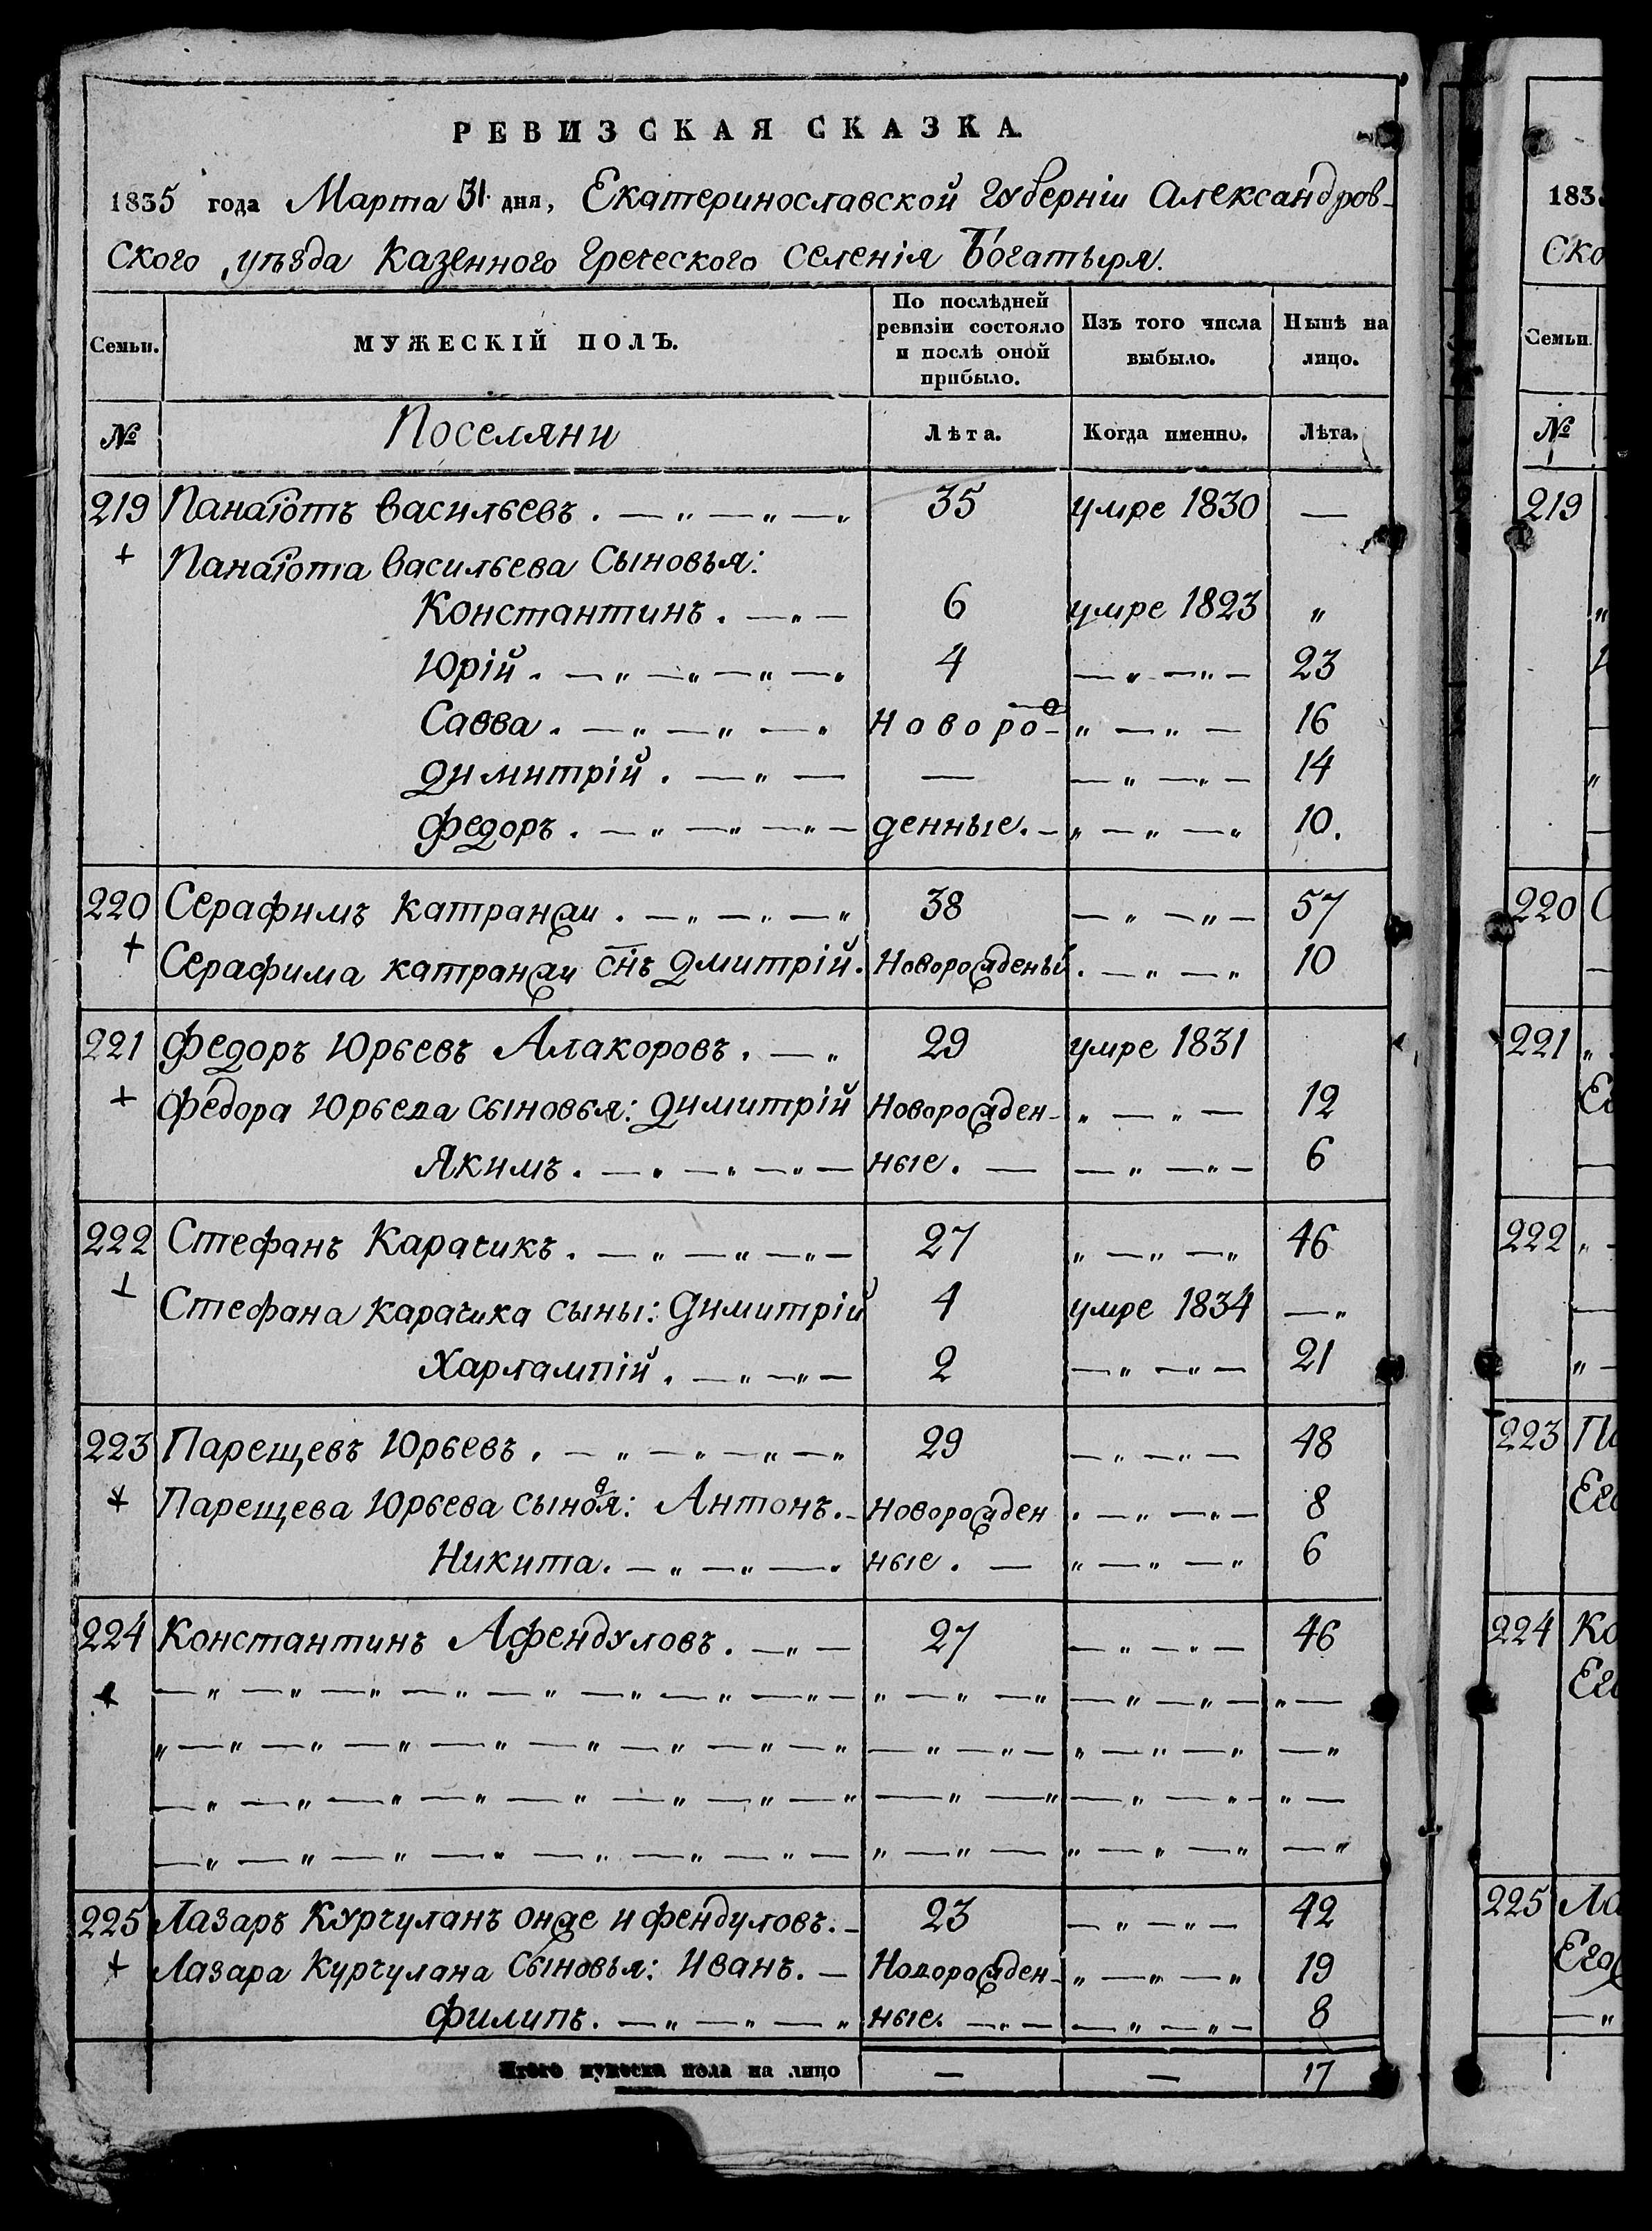 РЕВИЗСКАЯ СКАЗКА.
1835 года Марта 31 дня, Екатеринославской Губерніи Александров-
ского уѣзда Казенного Греческого селенія Богатыря.
Семьи. МУЖЕСКІЙ ПОЛЪ. По послѣдней ревизіи состояло и послѣ оной прибыло. Изъ того числа выбыло. Нынѣ на лицо.
№ Поселяни Лѣта. Когда именно. Лѣта.
219 Панаіотъ Васильевъ . — „ — „ — „ 35 умре 1830 —
+ Панаіота Васильева Сыновья:
Константинъ . — „ — 6 умре 1823 „
Юрій . — „ — „ — „ — „ 4 — „ — „ — 23
Савва . — „ — „ — „ Новорож- „ — „ — 16
Димитрій . — „ — — — „ — „ — 14
Федоръ . — „ — „ — „ — денные. — „ — „ — „ 10.
220 Серафимъ Катранжи . — „ — „ — „ 38 — „ — „ — 57
+ Серафима Катранжи снъ Дмитрій. Новорожденый . — „ — „ 10
221 Федоръ Юрьевъ Алакоровъ . — „ 29 умре 1831
+ Федора Юрьева сыновья: Димитрій Новорожден- „ — „ — 12
Якимъ . — „ — „ — „ — ные. — — „ — „ — 6
222 Стефанъ Карачикъ . — „ — „ — „ — 27 „ — „ — „ 46
+ Стефана Карачика сыны: Димитрій 4 умре 1834 — „
Харлампій . — „ — „ — 2 — „ — „ — 21
223 Парещевъ Юрьевъ . — „ — „ — „ — „ 29 — „ — „ — 48
+ Парещева Юрьева сыновя: Антонъ. — Новорожден „ — „ — „ — 8
Никита. — „ — „ — „ ные . — „ — „ — „ 6
224 Константинъ Афендуловъ . — „ — 27 — „ — „ — 46
+ — „ — „ — „ — „ — „ — „ — „ — „ — „ — „ — „ — „ — „ — „ —
„ — „ — „ — „ — „ — „ — „ — „ — „ — „ — „ — „ — „ — „ — „
— „ — „ — „ — „ — „ — „ — „ — „ — „ — „ — „ — „ — „ —
— „ — „ — „ — „ — „ — „ — „ — „ — „ — „ — „ — „ — „ — „
225 Лазаръ Курчуланъ онже и фендуловъ. — 23 — „ — „ — 42
+ Лазара Курчулана Сыновья: Иванъ. — Новорожден- „ — „ — „ 19
Филипъ. — „ — „ — „ ные. — „ — — „ — „ — 8
Итого мужеска пола на лицо — — 17
183
ско
Семьи.
№
219
220 С
221 „
Ег
222 „
223 Па
Его
224 Ко
Его
225 Ла
Его